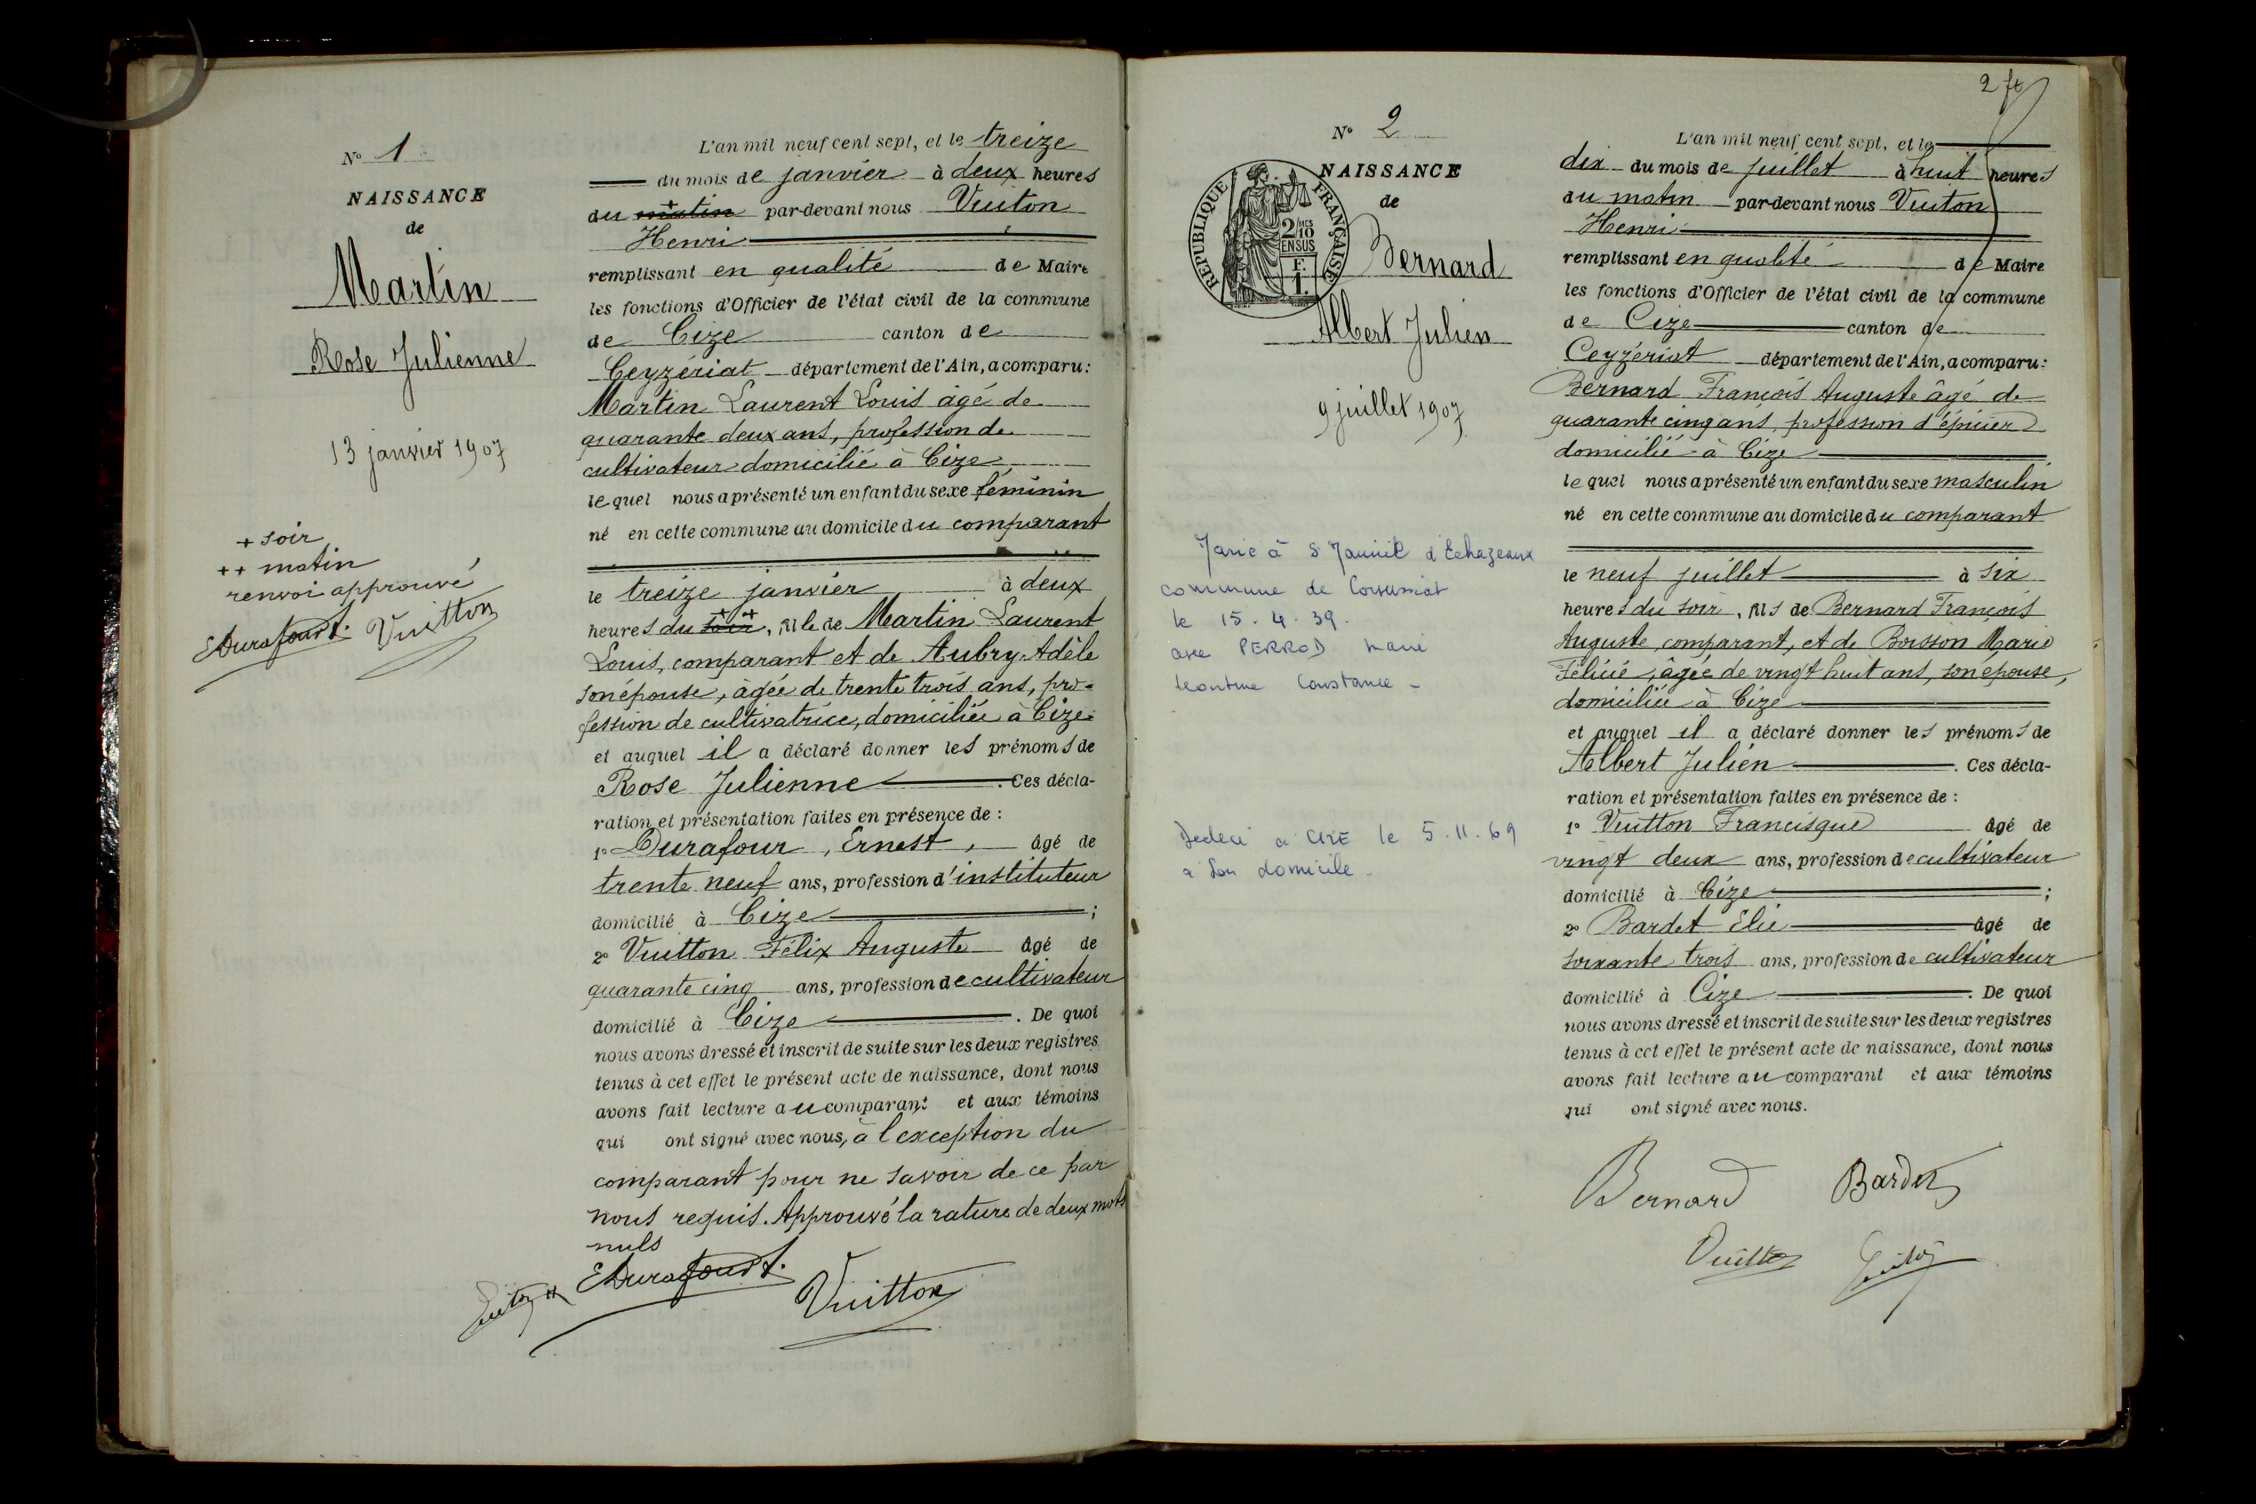 N° 1
NAISSANCE
de
Martin
Rose Julienne
13 janvier 1907
+ soir
++ matin
renvoi approuvé
EDurafourt. Vuitton
L'an mil neuf cent sept, et le treize
du mois de janvier à deux heures
du matin par-devant nous Vuiton
Henri
remplissant en qualité de Maire
les fonctions d'Officier de l'état civil de la commune
de Cize canton de
Ceyzériat département de l'Ain, a comparu:
Martin Laurent Louis âgé de
quarante deux ans, profession de
cultivateur domicilié à Cize
lequel nous a présenté un enfant du sexe féminin
né en cette commune au domicile du comparant
le treize janvier à deux
++
heures du soir, fille de Martin Laurent
Louis, comparant et de Aubry Adèle
son épouse, âgée de trente trois ans, pro-
fession de cultivatrice, domiciliée à Cize
et auquel il a déclaré donner les prénoms de
Rose Julienne . Ces décla-
ration et présentation faites en présence de :
1° Durafour, Ernest, âgé de
trente neuf ans, profession d'instituteur
domicilié à Cize ;
2° Vuitton Félix Auguste âgé de
quarante cinq ans, profession de cultivateur
domicilié à Cize . De quoi
nous avons dressé et inscrit de suite sur les deux registres
tenus à cet effet le présent acte de naissance, dont nous
avons fait lecture au comparant et aux témoins
qui ont signé avec nous, à l'exception du
comparant pour ne savoir de ce par
nous requis. Approuvé la rature de deux mots
nuls
EDurafourt.
Vuitton
2
N° 2
NAISSANCE
de
RÉPUBLIQUE FRANÇAISE
2/10
EN SUS
F.
1.
Bernard
Albert Julien
9 juillet 1907
Marié à
commune de
le 15.4.39.
avec PERROD Marie
Léontine Constance -
Décédé à CIZE le 5.11.69
à son domicile -
L'an mil neuf cent sept, et le
dix du mois de juillet à huit heures
du matin par-devant nous Vuiton
Henri
remplissant en qualité de Maire
les fonctions d'Officier de l'état civil de la commune
de Cize canton de
Ceyzériat département de l'Ain, a comparu:
Bernard François Auguste âgé de
quarante cinq ans, profession d'épicier
domicilié à Cize
lequel nous a présenté un enfant du sexe masculin
né en cette commune au domicile du comparant
le neuf juillet à six
heures du soir, fils de Bernard François
Auguste, comparant, et de Boisson Marie
Félicie, âgée de vingt huit ans, son épouse,
domiciliée à Cize
et auquel il a déclaré donner les prénoms de
Albert Julien . Ces décla-
ration et présentation faites en présence de :
1° Vuitton Francisque âgé de
vingt deux ans, profession de cultivateur
domicilié à Cize ;
2° Bardet Elie âgé de
soixante trois ans, profession de cultivateur
domicilié à Cize . De quoi
nous avons dressé et inscrit de suite sur les deux registres
tenus à cet effet le présent acte de naissance, dont nous
avons fait lecture au comparant et aux témoins
qui ont signé avec nous.
Bernard Bardet